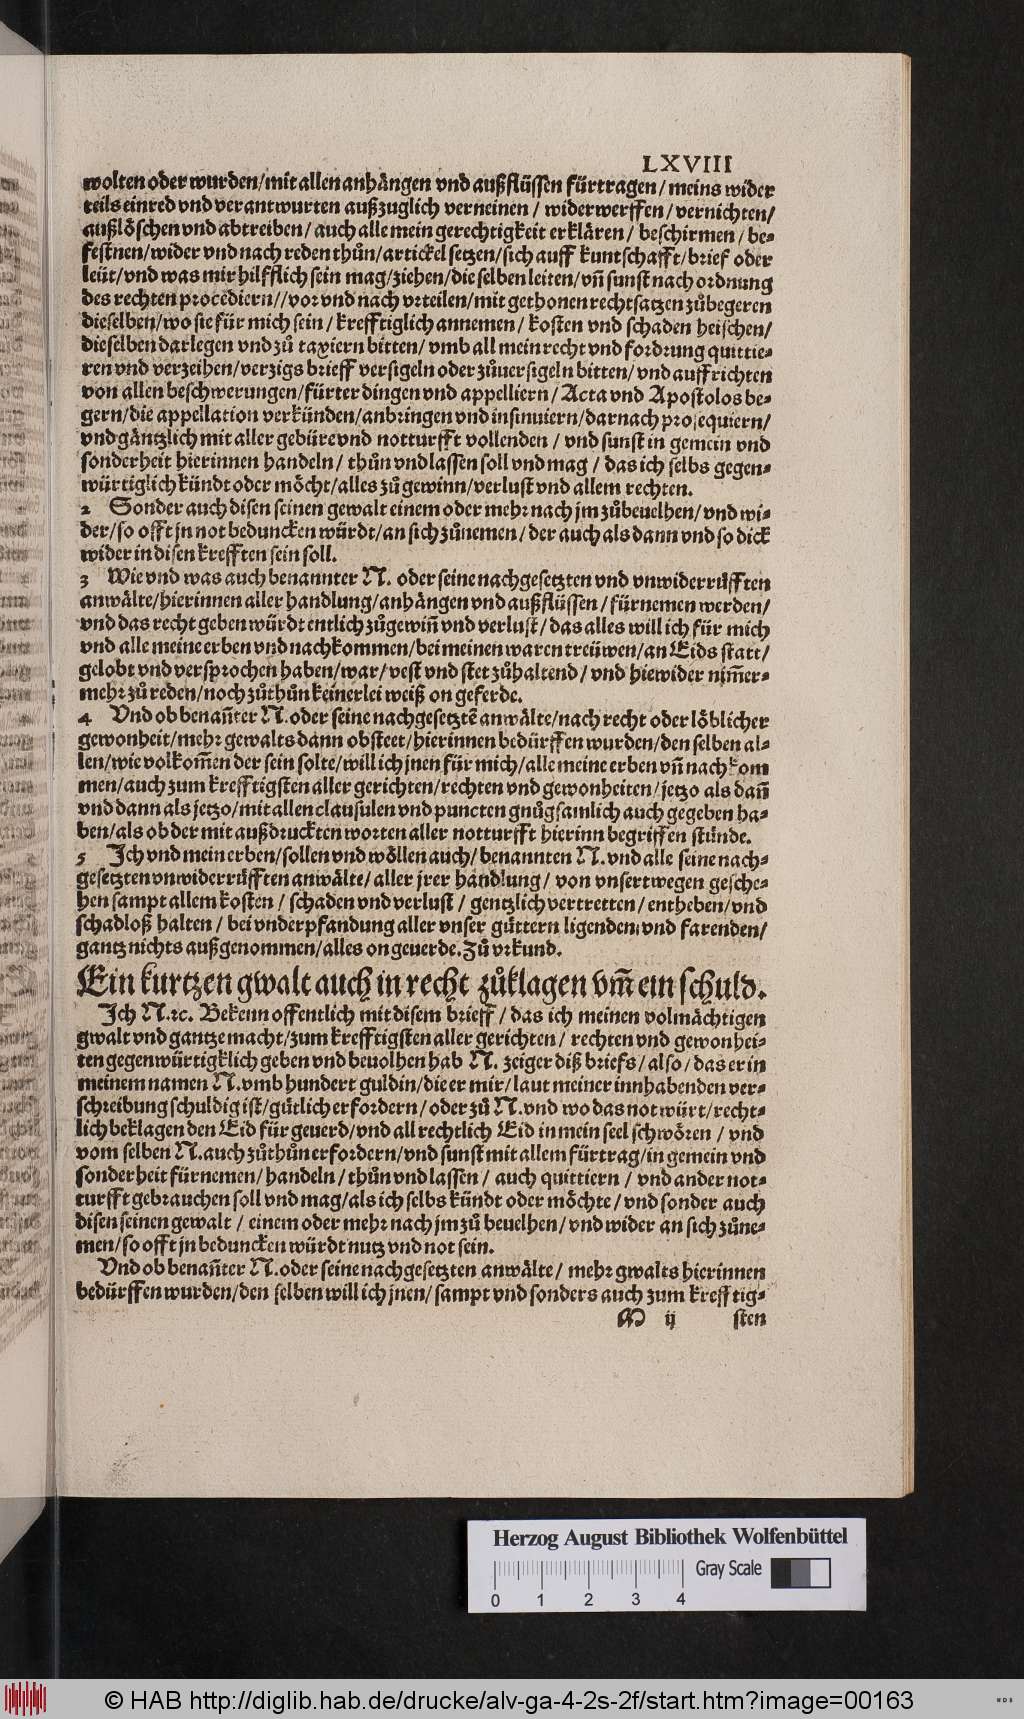 LXVIII
wolten oder wurden/mit allen anhängen vnd außflüssen fürtragen/ meins wider
teils einred vnd verantwurten außzuglich verneinen / widerwerffen/vernichten/
außlöschen vnd abtreiben/ auch alle mein gerechtigkeit erklären/ beschirmen/ be-
festnen/wider vnd nach reden thůn/artickel setzen/sich auff kuntschafft/brief oder
leüt/vnd was mir hilfflich sein mag/ziehen/die selben leiten/vñ sunst nach ordnung
des rechten procediern//vor vnd nach vrteilen/mit gethonen rechtsatzen zůbegeren
dieselben/wo sie für mich sein/ krefftiglich annemen/ kosten vnd schaden heischen/
dieselben darlegen vnd zů taxiern bitten/ vmb all mein recht vnd fordrung quittie-
ren vnd verzeihen/verzigs brieff versigeln oder zůuersigeln bitten/ vnd auffrichten
von allen beschwerungen/fürter dingen vnd appelliern/ Acta vnd Apostolos be-
gern/die appellation verkünden/anbringen vnd insinuiern/darnach prosequiern/
vnd gäntzlich mit aller gebüre vnd notturfft vollenden / vnd sunst in gemein vnd
sonderheit hierinnen handeln/ thůn vnd lassen soll vnd mag / das ich selbs gegen-
würtiglich kündt oder möcht/alles zů gewinn/verlust vnd allem rechten.
2 Sonder auch disen seinen gewalt einem oder mehr nach jm zůbeuelhen/ vnd wi-
der/so offt jn not beduncken würdt/an sich zůnemen/ der auch als dann vnd so dick
wider in disen krefften sein soll.
3 Wie vnd was auch benannter N. oder seine nachgesetzten vnd vnwiderrüfften
anwälte/hierinnen aller handlung/anhängen vnd außflüssen/ fürnemen werden/
vnd das recht geben würdt entlich zůgewiñ vnd verlust/ das alles will ich für mich
vnd alle meine erben vnd nachkommen/bei meinen waren treüwen/an Eids statt/
gelobt vnd versprochen haben/war/ vest vnd stet zůhaltend/ vnd hiewider nim̃er-
mehr zů reden/noch zůthůn keinerlei weiß on geferde.
4 Vnd ob benañter N. oder seine nachgesetztẽ anwälte/nach recht oder löblicher
gewonheit/mehr gewalts dann obsteet/hierinnen bedürffen wurden/den selben al-
len/wie volkom̃en der sein solte/will ich jnen für mich/alle meine erben vñ nachkom
men/auch zum krefftigsten aller gerichten/rechten vnd gewonheiten/jetzo als dañ
vnd dann als jetzo/mit allen clausulen vnd puncten gnůgsamlich auch gegeben ha-
ben/als ob der mit außdruckten worten aller notturfft hierinn begriffen stünde.
5 Ich vnd mein erben/sollen vnd wöllen auch/ benannten N. vnd alle seine nach-
gesetzten vnwiderrüfften anwälte/ aller jrer handlung/ von vnsert wegen gesche-
hen sampt allem kosten / schaden vnd verlust / gentzlich vertretten/ entheben/vnd
schadloß halten / bei vnderpfandung aller vnser güttern ligenden vnd farenden/
gantz nichts außgenommen/alles on geuerde. Zů vrkund.
Ein kurtzen gwalt auch in recht zůklagen vm̃ ein schuld.
Ich N. ꝛc. Bekenn offentlich mit disem brieff/ das ich meinen volmächtigen
gwalt vnd gantze macht/zum krefftigsten aller gerichten/ rechten vnd gewonhei-
ten gegenwürtigklich geben vnd beuolhen hab N. zeiger diß briefs/ also/ das er in
meinem namen N. vmb hundert guldin/die er mir/ laut meiner innhabenden ver-
schreibung schuldig ist/gütlich erfordern/ oder zů N. vnd wo das not würt/recht-
lich beklagen den Eid für geuerd/vnd all rechtlich Eid in mein seel schwören / vnd
vom selben N. auch zůthůn erfordern/vnd sunst mit allem fürtrag/in gemein vnd
sonderheit fürnemen/handeln/ thůn vnd lassen/ auch quittiern / vnd ander not-
turfft gebrauchen soll vnd mag/als ich selbs kündt oder möchte/ vnd sonder auch
disen seinen gewalt / einem oder mehr nach jm zů beuelhen/ vnd wider an sich zůne-
men/so offt jn beduncken würdt nutz vnd not sein.
Vnd ob benañter N. oder seine nachgesetzten anwälte/ mehr gwalts hierinnen
bedürffen wurden/den selben will ich jnen/ sampt vnd sonders auch zum krefftig-
M ij sten
Herzog August Bibliothek Wolfenbüttel
Gray Scale
0 1 2 3 4
© HAB http://diglib.hab.de/drucke/alv-ga-4-2s-2f/start.htm?image=00163